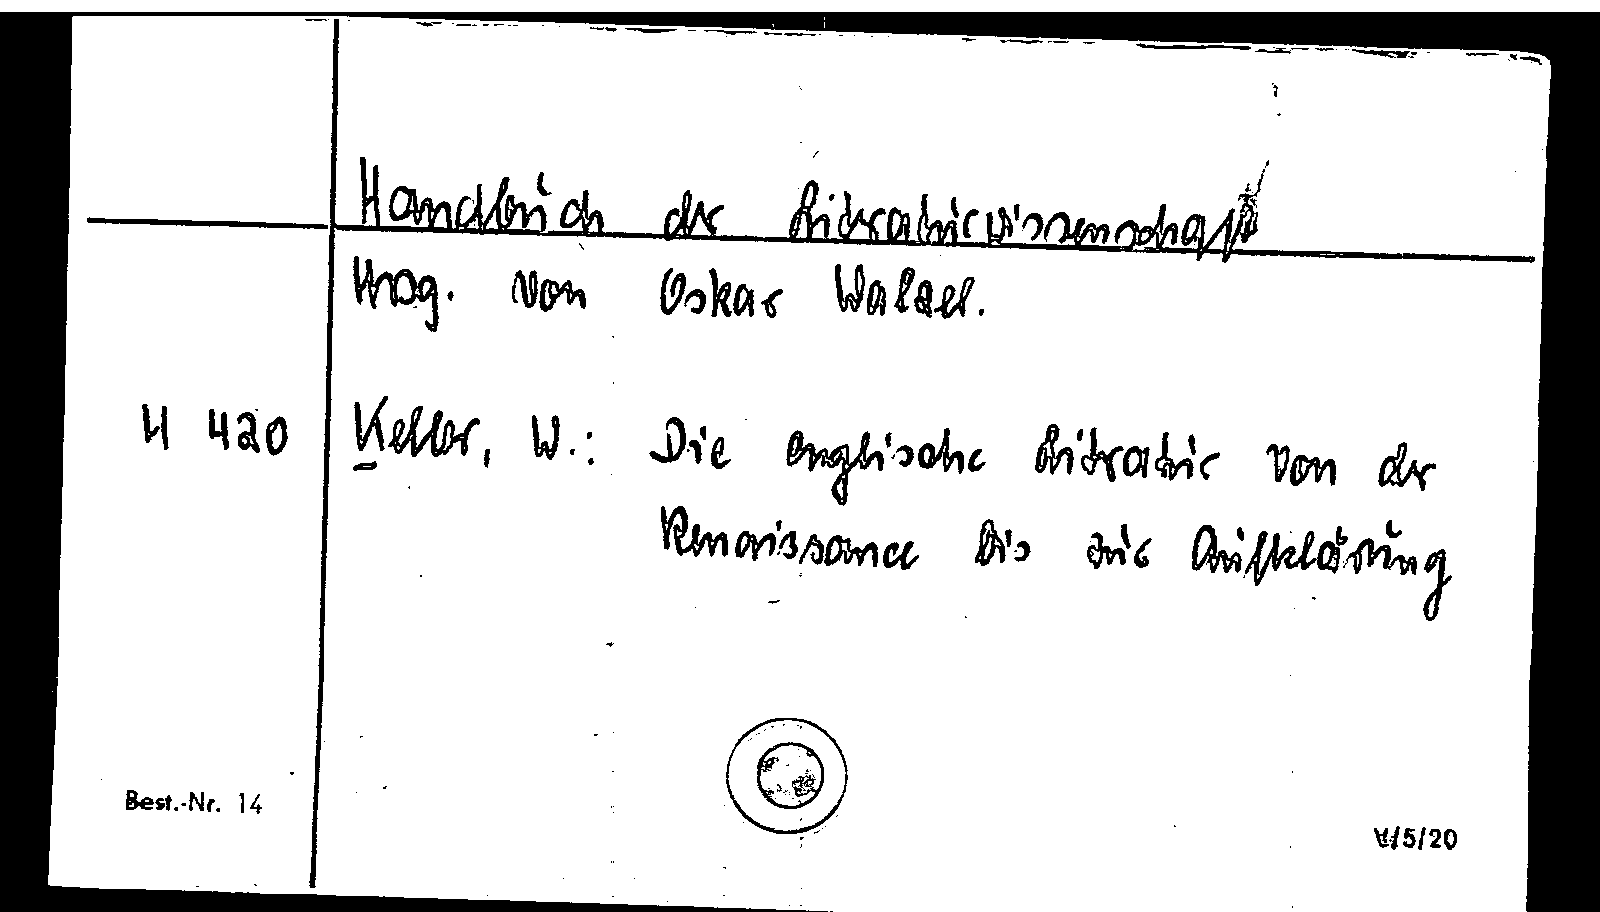 Handbuch der Literaturwissenschaft
Hrsg. von Oskar Walzel.
H 420 Keller, W.: Die englische Literatur von der
Renaissance bis zur Aufklärung
Best.-Nr. 14
V/5/20